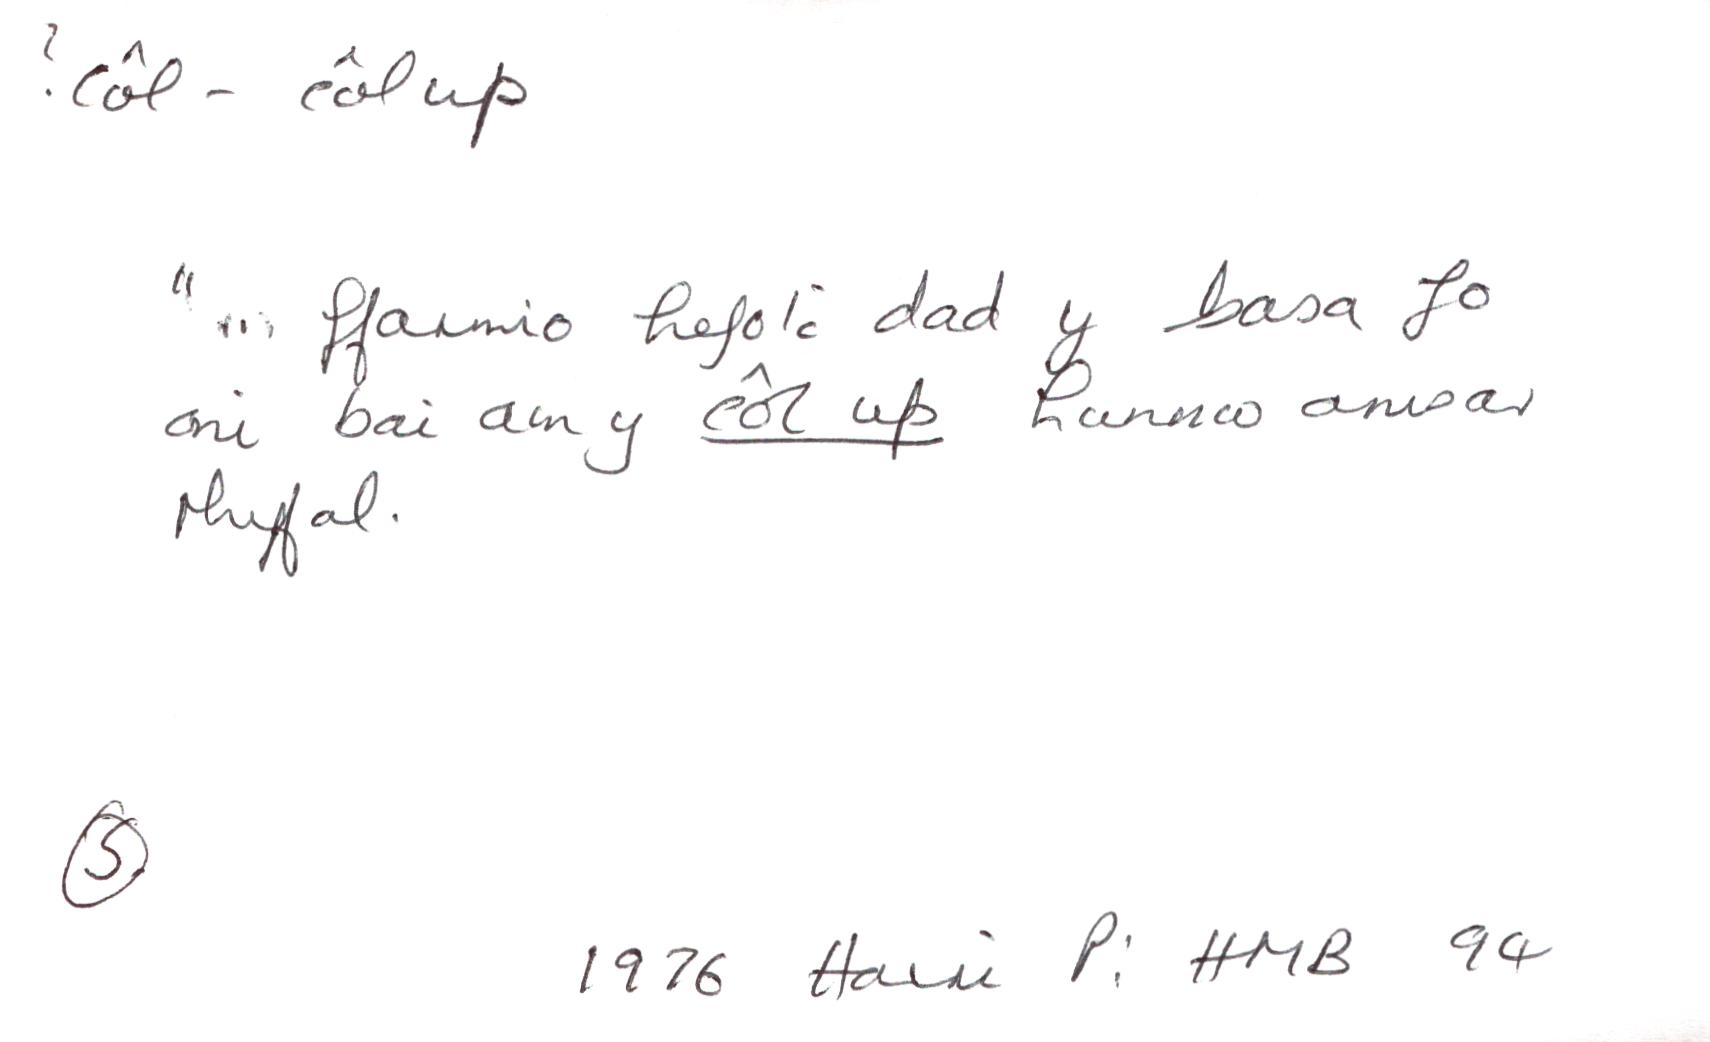 ? côl - côl up
"... ffarmio hefo'i dad y basa fo
oni bai am y côl up hunnw amsar
rhyfal.
5
1976 Harri P: HMB 94